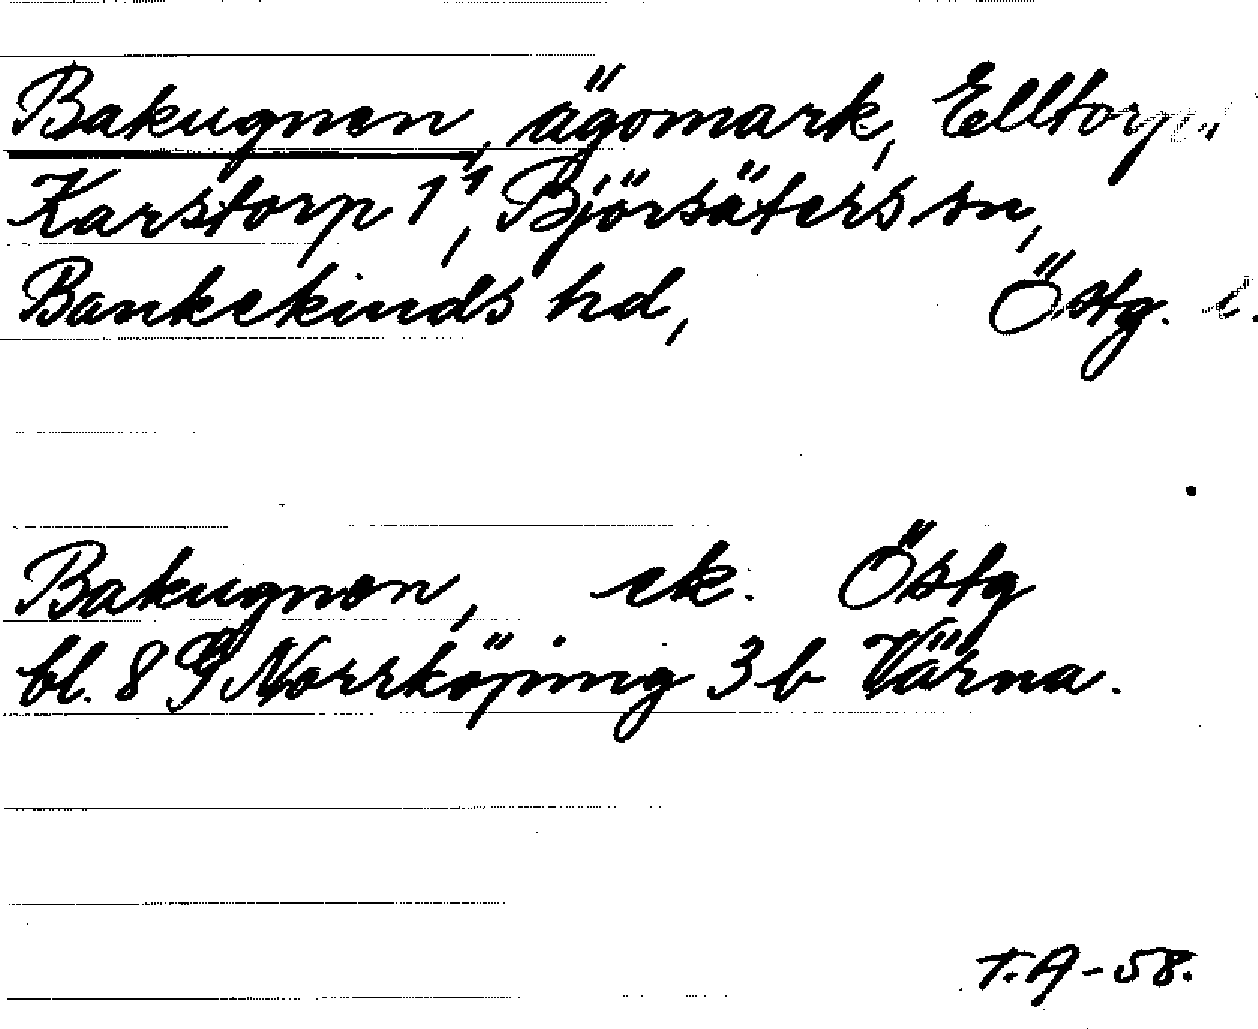 Bakugnen, ägomark, Elltorp
Karstorp 1¹, Björsäters sn,
Bankekinds hd, Östg. l.
Bakugnen, ek. Östg
bl. 8 G Norrköping 3 b Värna.
T.A-58.